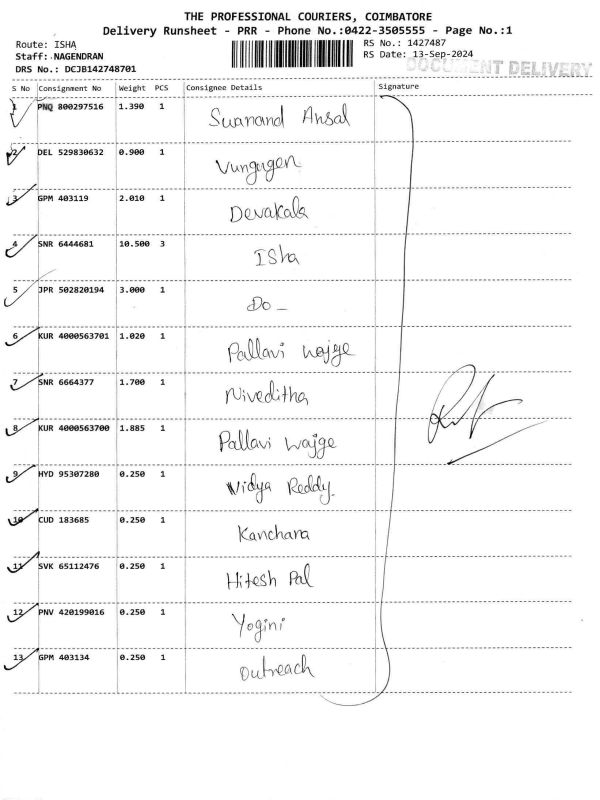 THE PROFESSIONAL COURIERS, COIMBATORE
Delivery Runsheet - PRR - Phone No.:0422-3505555 - Page No.:1
Route: ISHA RS No.: 1427487
Staff: NAGENDRAN RS Date: 13-Sep-2024
DRS No.: DCJB142748701 DOCUMENT DELIVERY
S No Consignment No Weight PCS Consignee Details Signature
1 PNQ 800297516 1.390 1 Swanand Ansal
2 DEL 529830632 0.900 1
3 GPM 403119 2.010 1 Devakala
4 SNR 6444681 10.500 3 ISha
5 JPR 502820194 3.000 1 Do -
6 KUR 4000563701 1.020 1 Pallavi Wajge
7 SNR 6664377 1.700 1 Niveditha
8 KUR 4000563700 1.885 1 Pallavi Wajge
9 HYD 95307280 0.250 1 Vidya Reddy.
10 CUD 183685 0.250 1 Kanchana
11 SVK 65112476 0.250 1 Hitesh Pal
12 PNV 420199016 0.250 1 Yogini
13 GPM 403134 0.250 1 Outreach